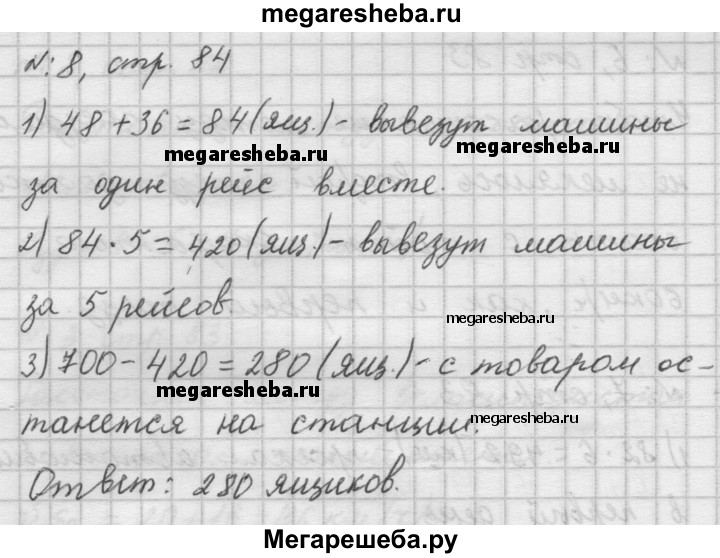 megaresheba.ru
№: 8, стр. 84
1) 48 + 36 = 84 (ящ.) - вывезут машины
megaresheba.ru megaresheba.ru
за один рейс вместе.
2) 84 · 5 = 420 (ящ.) - вывезут машины
за 5 рейсов.
megaresheba.ru
3) 700 - 420 = 280 (ящ.) - с товаром ос-
megaresheba.ru
танется на станции.
megaresheba.ru
Ответ: 280 ящиков.
Мегарешеба.ру